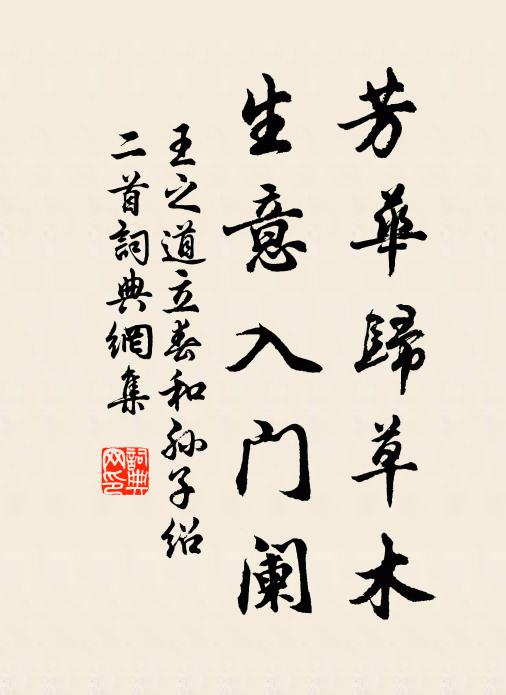 芳華歸草木
生意入门阑
王之道立春和孙子绍
二首詞典網集
詞典网印